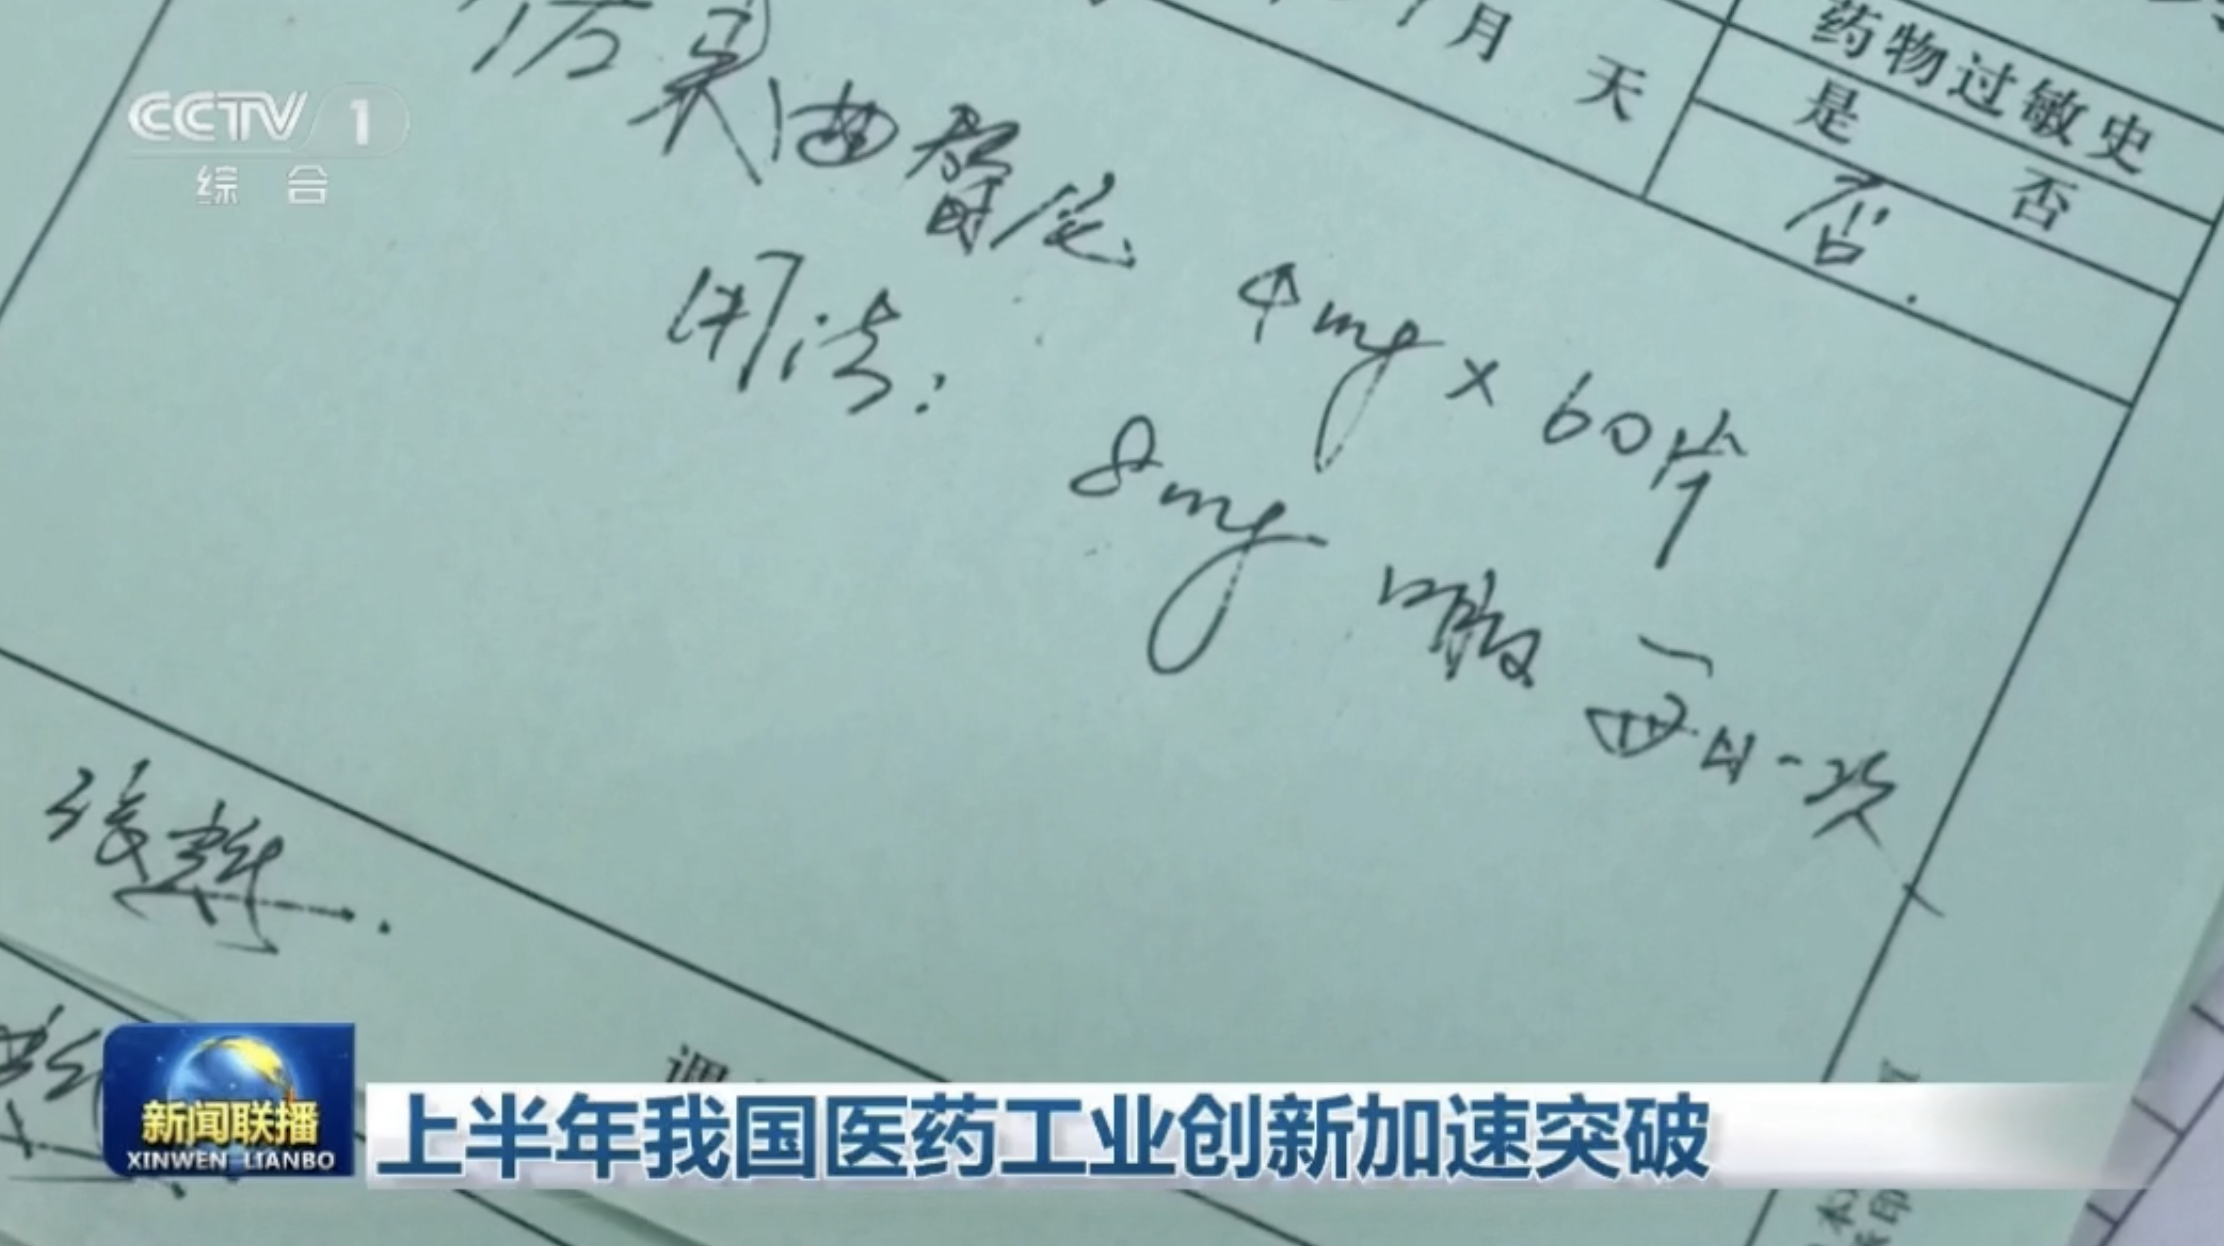 药物过敏史
月 天
是 否
否.
佐来曲替尼 4mg×60片
用法: 8mg 口服 每日一次
张
CCTV 1
综合
新闻联播
XINWEN LIANBO
上半年我国医药工业创新加速突破